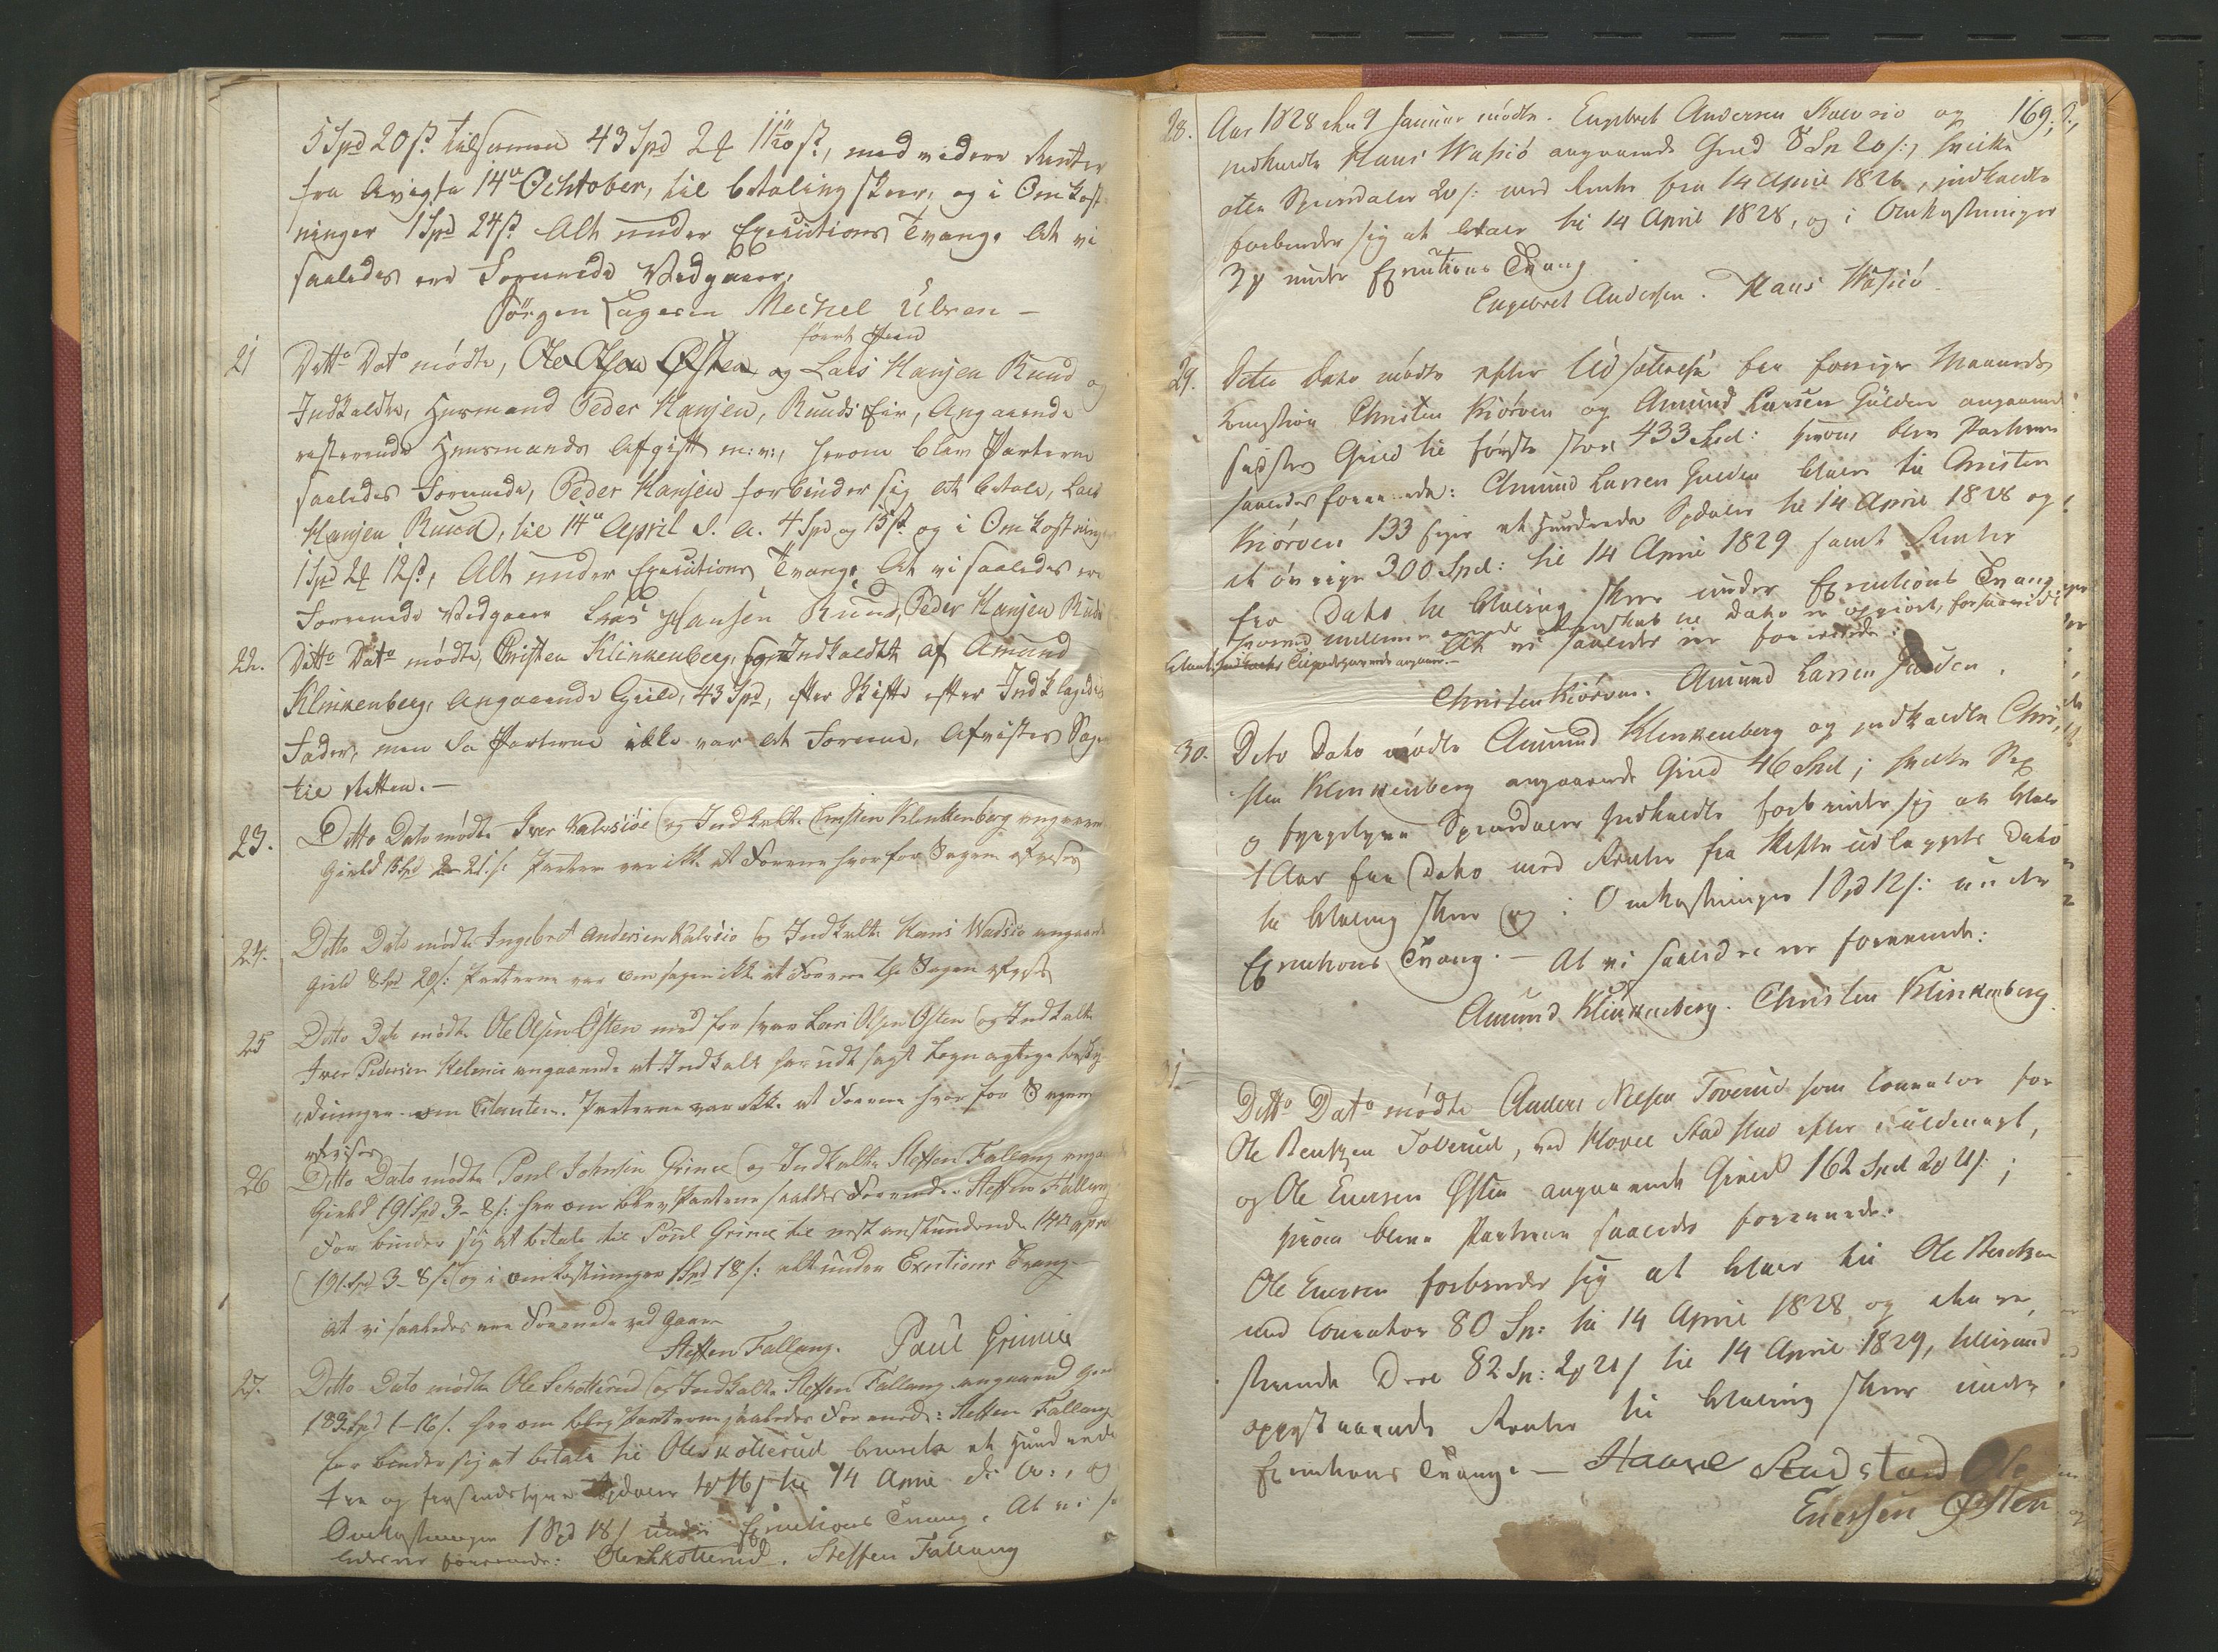 5 Spd 20 s. tilsammen 43 Spd 2 11 s., med videre Renter
fra 14de Ochtober, til betaling skeer, og i Omkost-
ninger 1 Spd 24 s. Alt under Execütions Tvang. At vi
saaledes ere Foreenede Vedgaaer,
Jörgen Michel Ulsen —
21 Ditto Dato mödte, Ole Olsen Østen og Lars Hansen Ruud og
Indkaldte, Huusmand Peder Hansen, Angaaende
resterende Huusmands Afgift m: v:, herom blev Parterne
saaledes Foreenede, Peder Hansen forbinder sig at betale, Lars
Hansen Ruud, til 14de April d. a. 4 Spd og 15 s. og i Omkostninger
1 Spd 2 12 s., Alt under Execütions Tvang. At vi saaledes ere
Foreenede Vedgaaer Lras Hansen Ruud, Peder Hansen
22. Ditto Dato mödte, Christen Klinkenberg, Indkaldt af Amund
Klinkenberg, Angaaende Gield, 43 Spd, efter Skifte efter Indklagedes
Fader, men da Parterne ikke var at Foreene, Afvistes Sagen
til Retten. —
23. Ditto Dato mödte Iver Kalvsiöe og Indkalte Christen Klinkenberg angaaende
Gield 15 Spd 2 - 21 s. Parterne var ikke at Foreene hvorfor Sagen afvises
24. Ditto Dato mödte Ingebret Andersen Kalvsiö og Indkalte Hans Wadsiö angaaende
Gield 8 Spd 20 s: Parterne var om sagen ikke at Foreene Sagen afvises
25 Ditto Dato mödte Ole Olsen Østen med for svar Lars Olsen Østen og Indkalte
Iver Pedersen angaaende at Indkalte har udsagt løgnagtige besky-
dninger om Citanten. Parterne var ikke at Foreene hvor for Sagen
afvises
26 Ditto Dato mödte Poul Johnsen Grinie og Indkalte Steffen Fallang angaaende
Gield 191 Spd 3 - 8 s: her om blev Parterne saaledes Foreenede. Steffen Fallang
For binder sig at betale til Poul Grinie til nest anstundende 14de April
191 Spd 3 - 8 s. og i omkostninger 1 Spd 18 s: alt under Execütions Tvang —
at vi saaledes ere Foreenede ved gaaer
Steffen Fallang. Paul Grinnie
27. Ditto Dato mödte Ole Skotterud og Indkalte Steffen Fallang angaaende Gield
183 Spd 1 - 16 s. her om blev Parterne saaledes Foreenede: Steffen Fallang
for binder sig at betale til Ole Skotterud bemelte et Hundrede
tre og firsendstyve Spdaler 1 16 s til 14 April d: A:, og
Omkostninger 1 Spd 18 s under Execütions Tvang. At vi saa-
ledes er foreenede: Ole Skotterud. Steffen Fallang
169.
28. Aar 1828 den 9 Januar mödte Engebret Andersen Kalvsiö og
indkaldte Hans Waßiö angaaende Gield 8 Sp 20 s:, hvilke
otte Speciedaler 20 s: med Renter fra 14 April 1826, indkaldte
forbinder sig at betale til 14 April 1828, og i Omkostninger
3 under Execütions Tvang
Engebret Andersen. Hans Waßiö
29. Ditto Dato mödte efter Udsættelse fra forrige Maaneds
Christen Kiörven og Amund Larsen Gulden angaaende
Gield til förste stor 433 Spd: herom blev Parterne
saaledes foreenede: Amund Larsen Gulden betaler til Christen
Kiörven 133 siger et hundrede Spdaler til 14 April 1828 og
de övrige 300 Spd: til 14 April 1829 samt Renter
fra Dato til betaling skeer under Execütions Tvang
hvorved mellemværende til Dato er opgiort, forsaavidt
At vi saaledes er foreenede:
Christen Kiörven. Amund Larsen Gulden.
30. Ditto Dato mödte Amund Klinkenberg og indkaldte Chri-
sten Klinkenberg angaaende Gield 46 Spd; hvilke Sex
og fyrgetyve Speciedaler Indkaldte forbinder sig at betale
1 Aar fra Dato med Renter fra Skifte udlægets Dato
til betaling skeer og i Omkostninger 1 Spd 12 s: under
Execütions Tvang. — At vi saaledes er foreenede:
Amund Klinkenberg. Christen Klinkenberg.
31 Ditto Dato mödte Anders Nielsen Toverud som Courator for
Ole Bentzen Toverud, ved Haavel Stadstad efter fuldmagt,
og Ole Evensen Østen angaaende Gield 162 Spd 2 21 s:;
herom bleve Parterne saaledes foreenede.
Ole Evensen forbinder sig at betale til Ole Bentzen
med Courator 80 Sp: til 14 April 1828, og den re-
sterende Deel 82 Sp: 2 21 s til 14 April 1829, tillige med
opgaaende Renter til betaling skeer under
Execütions Tvang. — Haavel Stadstad Ole
Evensen Østen